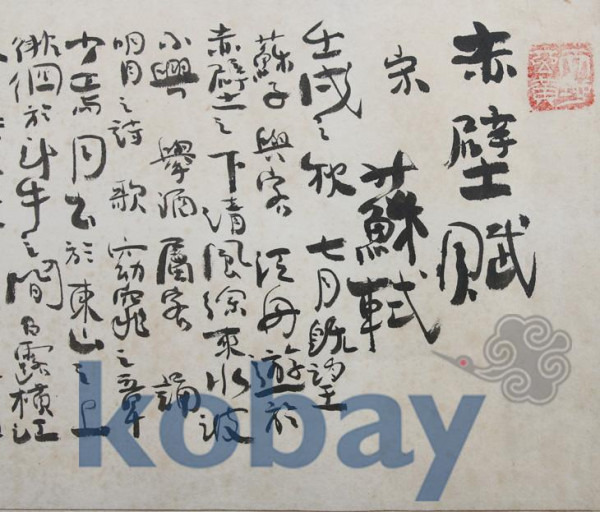 赤壁賦
宋 蘇軾
壬戌之秋 七月旣望
蘇子與客 泛舟遊於
赤壁之下 清風徐來 水波
不興 擧酒屬客 誦
明月之詩 歌窈窕之章
少焉 月出於東山之上
徘徊於斗牛之間 白露橫江
kobay